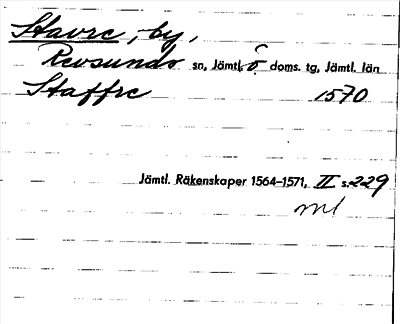 Stavre, by,
Revsunds sn, Jämtl. ö doms. tg, Jämtl. län
Staffre 1570
Jämtl. Räkenskaper 1564-1571, II s. 229